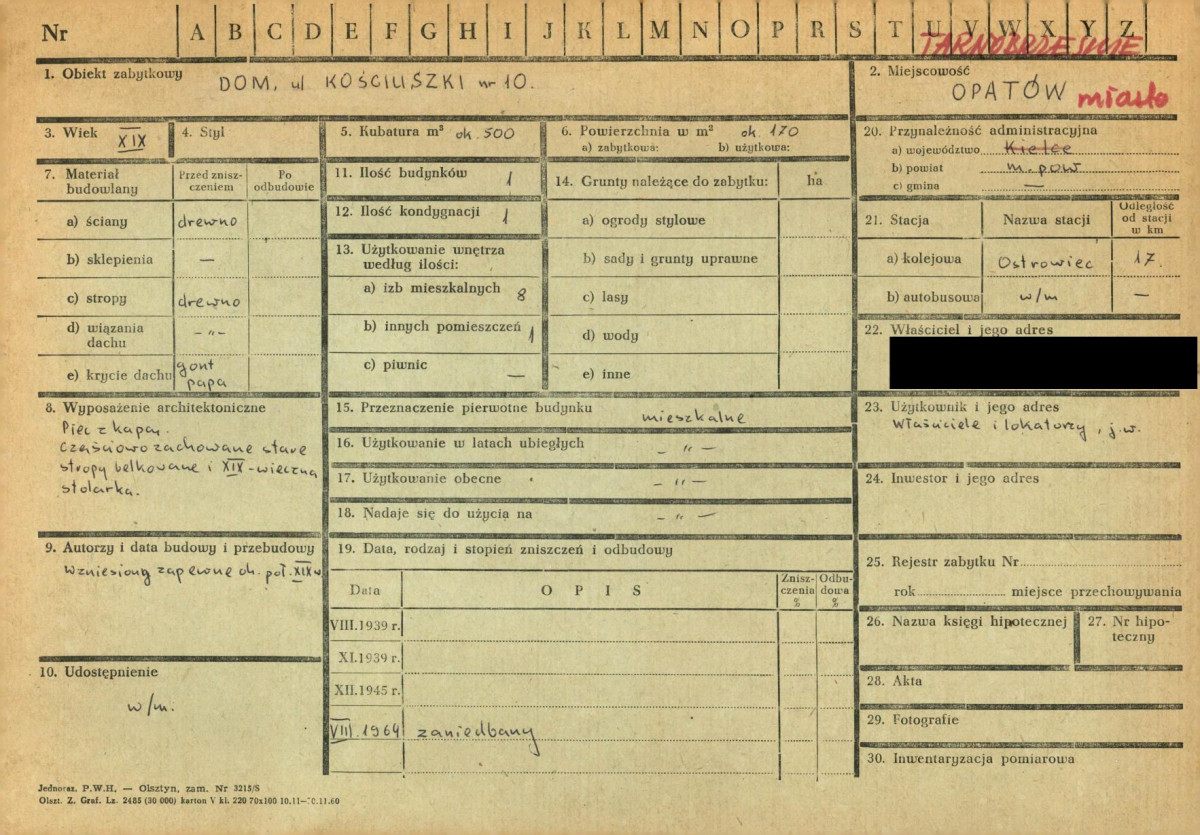 Nr A B C D E F G H I J K L M N O P R S T U V W X Y Z
TARNOBRZESKIE
1. Obiekt zabytkowy DOM, ul KOŚCIUSZKI nr 10.
2. Miejscowość
OPATÓW miasto
3. Wiek XIX
4. Styl
5. Kubatura m³ ok. 500
6. Powierzchnia w m² ok. 170
a) zabytkowa: b) użytkowa:
7. Materiał budowlany
Przed zniszczeniem
Po odbudowie
a) ściany drewno
b) sklepienia —
c) stropy drewno
d) wiązania dachu —〃—
e) krycie dachu gont papa
8. Wyposażenie architektoniczne
Piec z kapą.
Częściowo zachowane stare
stropy belkowane i XIX-wieczna
stolarka.
9. Autorzy i data budowy i przebudowy
Wzniesiony zapewne ok. poł. XIX w
10. Udostępnienie
w/m.
11. Ilość budynków 1
12. Ilość kondygnacji 1
13. Użytkowanie wnętrza
według ilości:
a) izb mieszkalnych 8
b) innych pomieszczeń 1
c) piwnic —
14. Grunty należące do zabytku: ha
a) ogrody stylowe
b) sady i grunty uprawne
c) lasy
d) wody
e) inne
15. Przeznaczenie pierwotne budynku mieszkalne
16. Użytkowanie w latach ubiegłych — 〃 —
17. Użytkowanie obecne — 〃 —
18. Nadaje się do użycia na — 〃 —
19. Data, rodzaj i stopień zniszczeń i odbudowy
Data O P I S Zniszczenia % Odbudowa %
VIII.1939 r.
XI.1939 r.
XII.1945 r.
VIII.1964 zaniedbany
20. Przynależność administracyjna
a) województwo Kielce
b) powiat m. pow
c) gmina —
21. Stacja Nazwa stacji Odległość od stacji w km
a) kolejowa Ostrowiec 17.
b) autobusowa w/m —
22. Właściciel i jego adres
23. Użytkownik i jego adres
Właściciele i lokatorzy, j.w.
24. Inwestor i jego adres
25. Rejestr zabytku Nr
rok miejsce przechowywania
26. Nazwa księgi hipotecznej
27. Nr hipoteczny
28. Akta
29. Fotografie
30. Inwentaryzacja pomiarowa
Jednoraz. P.W.H. — Olsztyn, zam. Nr 3215/S
Olszt. Z. Graf. Lz. 2485 (30 000) karton V kl. 220 70x100 10.11—10.11.60